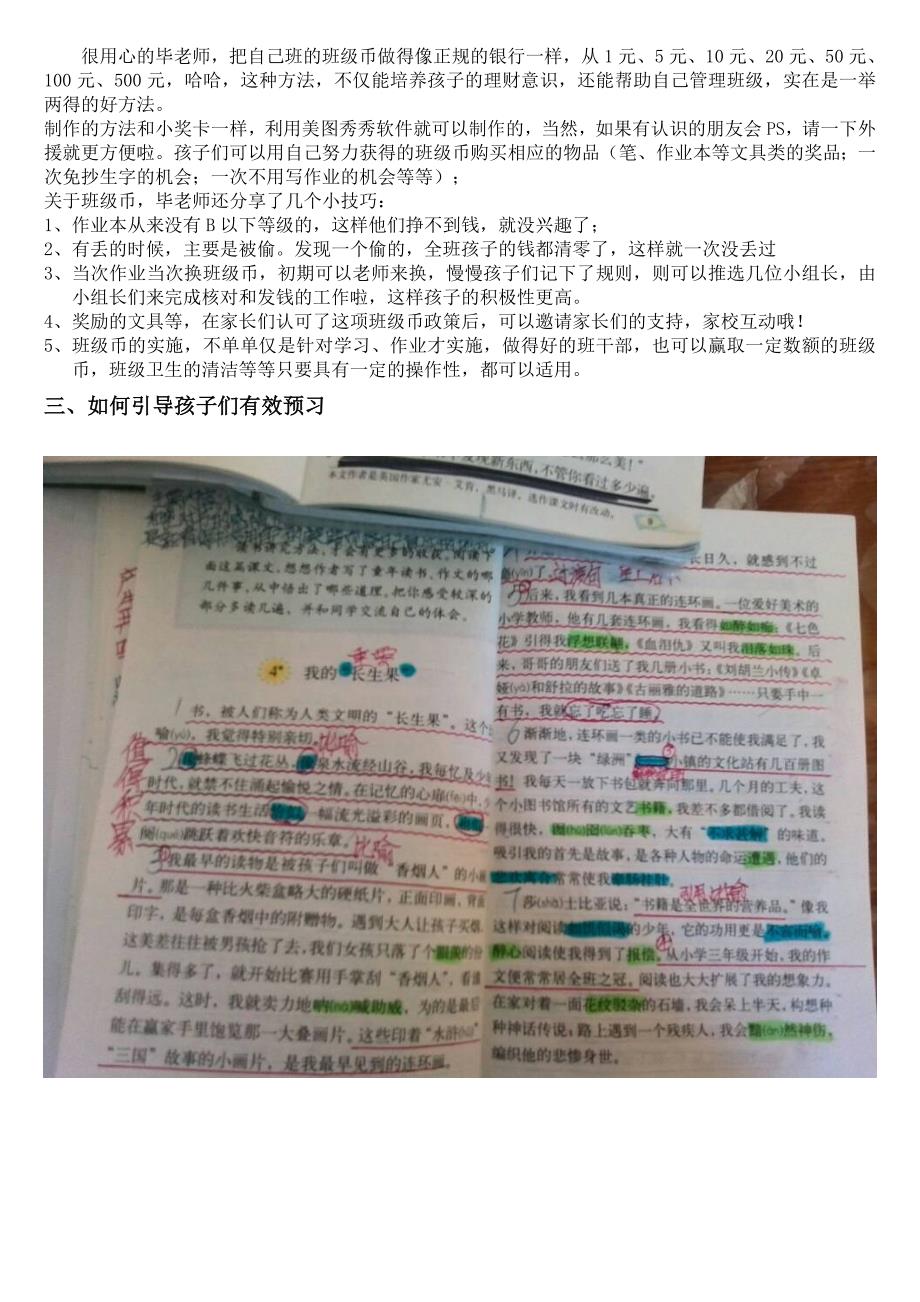 很用心的毕老师，把自己班的班级币做得像正规的银行一样，从1元、5元、10元、20元、50元、
100元、500元，哈哈，这种方法，不仅能培养孩子的理财意识，还能帮助自己管理班级，实在是一举
两得的好方法。
制作的方法和小奖卡一样，利用美图秀秀软件就可以制作的，当然，如果有认识的朋友会PS，请一下外
援就更方便啦。孩子们可以用自己努力获得的班级币购买相应的物品（笔、作业本等文具类的奖品；一
次免抄生字的机会；一次不用写作业的机会等等）；
关于班级币，毕老师还分享了几个小技巧：
1、作业本从来没有B以下等级的，这样他们挣不到钱，就没兴趣了；
2、有丢的时候，主要是被偷。发现一个偷的，全班孩子的钱都清零了，这样就一次没丢过
3、当次作业当次换班级币，初期可以老师来换，慢慢孩子们记下了规则，则可以推选几位小组长，由
小组长们来完成核对和发钱的工作啦，这样孩子的积极性更高。
4、奖励的文具等，在家长们认可了这项班级币政策后，可以邀请家长们的支持，家校互动哦！
5、班级币的实施，不单单仅是针对学习、作业才实施，做得好的班干部，也可以赢取一定数额的班级
币，班级卫生的清洁等等只要具有一定的操作性，都可以适用。
三、如何引导孩子们有效预习
那么美！”
发现新东西，不管你看过多少遍。
本文作者是英国作家尤安·艾肯，黑马译，选作课文时有改动。
9
读书讲究方法，才会有更多的收获。阅读下
面这篇课文，想想作者写了童年读书、作文的哪
几件事，从中悟出了哪些道理。把你感受较深的
部分多读几遍，并和同学交流自己的体会。
4* 我的“长生果”
1 书，被人们称为人类文明的“长生果”。这个
喻(yù)，我觉得特别亲切。比喻
2 蜂蝶飞过花丛，泉水流经山谷，我每忆及少
时代，就禁不住涌起愉悦之情。在记忆的心扉(fēi)中，少
年时代的读书生活恰似一幅流光溢彩的画页，
阕(què)跳跃着欢快音符的乐章。比喻
3 我最早的读物是被孩子们叫做“香烟人”的小画
片。那是一种比火柴盒略大的硬纸片，正面印画，背面
印字，是每盒香烟中的附赠物。遇到大人让孩子买烟，
这美差往往被男孩抢了去，我们女孩只落了个眼羡的份
儿。集得多了，就开始比赛用手掌刮“香烟人”，看谁
刮得远。这时，我就卖力地呐(nà)喊助威，为的是最后
能在赢家手里饱览那一大叠画片。这些印着“水浒(hǔ)”
“三国”故事的小画片，是我最早见到的连环画。
值得和慕
长日久，就感到不过
瘾(yǐn)了。过渡句
5 后来，我看到几本真正的连环画。一位爱好美术的
小学教师，他有几套连环画，我看得如醉如痴：《七色
花》引得我浮想联翩，《血泪仇》又叫我泪落如珠。后
来，哥哥的朋友们送了我几册小书：《刘胡兰小传》《卓
娅(yà)和舒拉的故事》《古丽雅的道路》……只要手中一
有书，我就忘了吃忘了睡
6 渐渐地，连环画一类的小书已不能使我满足了，我
又发现了一块“绿洲”小镇的文化站有几百册图
书！我每天一放下书包就奔向那里。几个月的工夫，这
个小图书馆所有的文艺书籍，我差不多都借阅了。我读
得很快，囫(hú)囵(lún)吞枣，大有“不求甚解”的味道。
吸引我的首先是故事，是各种人物的命运遭遇，他们的
悲欢离合常常使我牵肠挂肚。
7 莎(shā)士比亚说：“书籍是全世界的营养品。”像我
这样对阅读如饥似渴的少年，它的功用更是不言而喻。
醉心阅读使我得到了报偿。从小学三年级开始，我的作
文便常常居全班之冠。阅读也大大扩展了我的想象力。
在家对着一面花纹驳杂的石墙，我会呆上半天，构想种
种神话传说；路上遇到一个残疾人，我会黯(àn)然神伤，
编织他的悲惨身世。